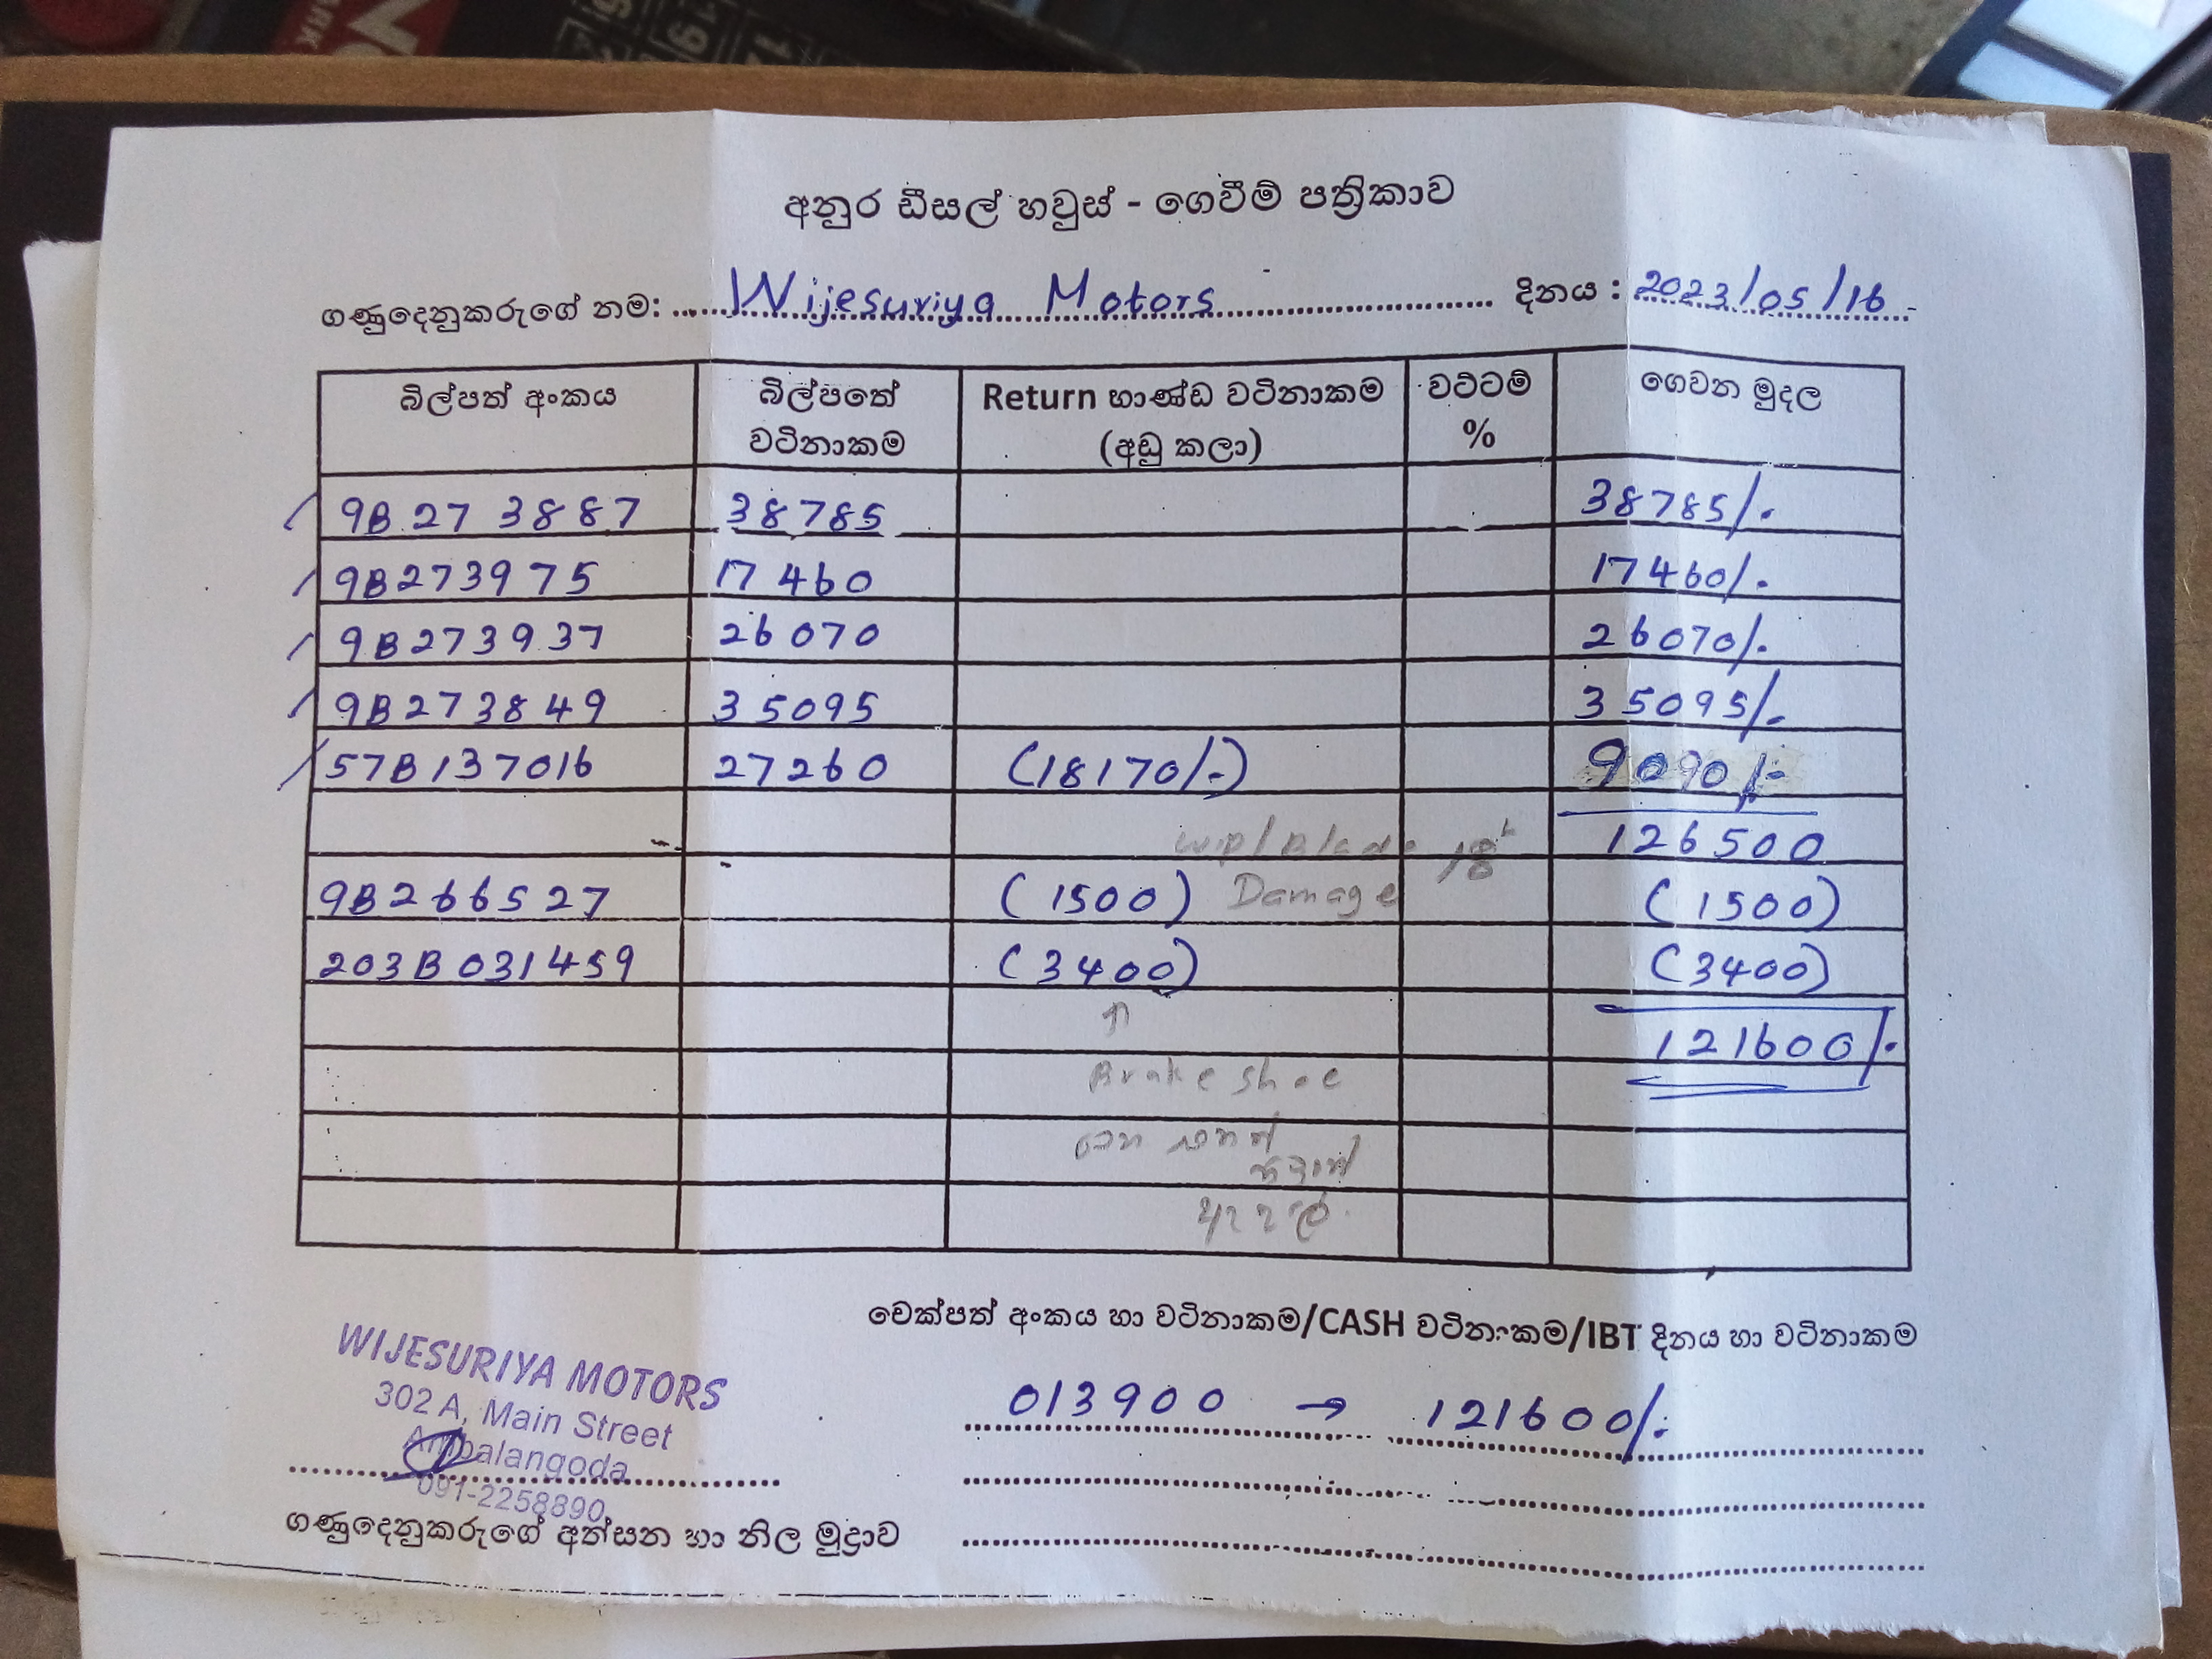 අනුර ඩීසල් හවුස් - ගෙවීම් පත්‍රිකාව
ගණුදෙනුකරුගේ නම: Wijesuriya Motors දිනය : 2023/05/16
බිල්පත් අංකය බිල්පතේ වටිනාකම Return භාණ්ඩ වටිනාකම (අඩු කලා) වට්ටම් % ගෙවන මුදල
9B 27 3887 38785 38785/-
9B273975 17460 17460/-
9B273937 26070 26070/-
9B273849 35095 35095/-
57B137016 27260 (18170/-) 9090/-
Wip/Blade 18" 126500
9B266527 (1500) Damage (1500)
203B031459 (3400) (3400)
↑ 121600/-
Brake shoe
චෙක්පත් අංකය හා වටිනාකම/CASH වටිනාකම/IBT දිනය හා වටිනාකම
WIJESURIYA MOTORS
302 A, Main Street
Ambalangoda
091-2258890
013900 → 121600/-
ගණුදෙනුකරුගේ අත්සන හා නිල මුද්‍රාව